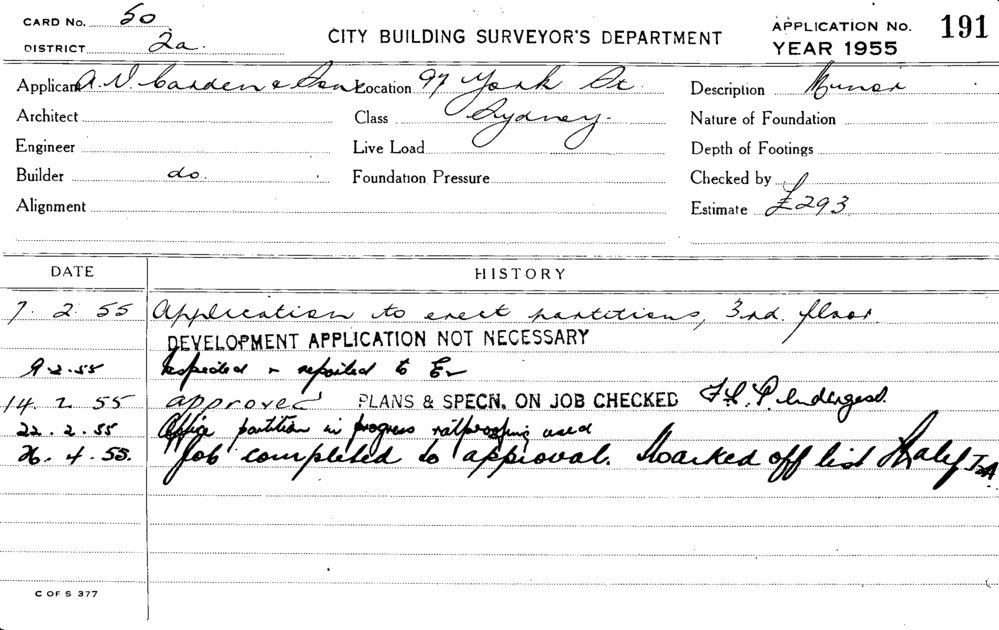 CARD No. 50
DISTRICT 2a.
CITY BUILDING SURVEYOR'S DEPARTMENT
APPLICATION No. 191
YEAR 1955
Applicant A. V. Carden & Son Location 97 York St Description Minor
Architect Class Sydney. Nature of Foundation
Engineer Live Load Depth of Footings
Builder do. Foundation Pressure Checked by
Alignment Estimate £293
DATE HISTORY
7. 2. 55 Application to erect partitions, 3rd. floor.
DEVELOPMENT APPLICATION NOT NECESSARY
9.2.55 Inspected & reported to
14. 2. 55 approved PLANS & SPECN. ON JOB CHECKED
22. 2. 55 Office partition in progress ratproofing used
26. 4. 55. Job completed to approval. Marked off list
C OF S 377